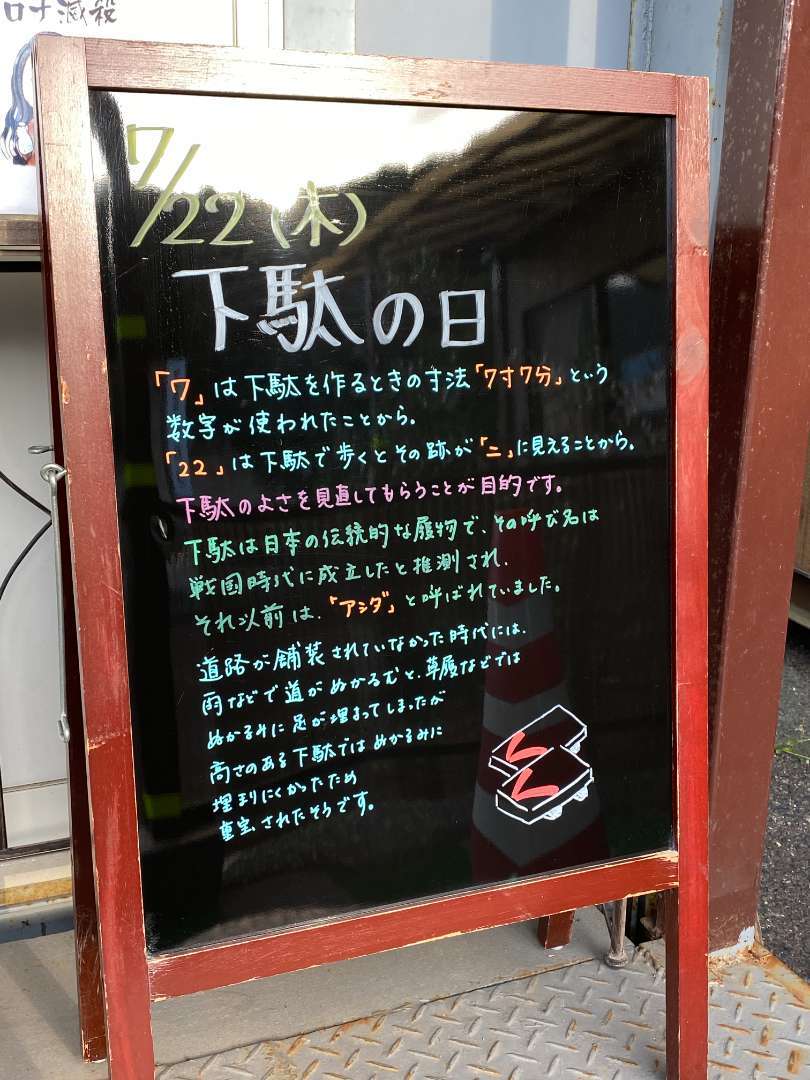 ロナ滅殺
7/22(木)
下駄の日
「7」は下駄を作るときの寸法「7寸7分」という
数字が使われたことから。
「22」は下駄で歩くとその跡が「二」に見えることから。
下駄のよさを見直してもらうことが目的です。
下駄は日本の伝統的な履物で、その呼び名は
戦国時代に成立したと推測され、
それ以前は、「アシダ」と呼ばれていました。
道路が舗装されていなかった時代には、
雨などで道がぬかるむと、草履などでは
ぬかるみに足が埋まってしまったが
高さのある下駄ではぬかるみに
埋まりにくかったため
重宝されたそうです。